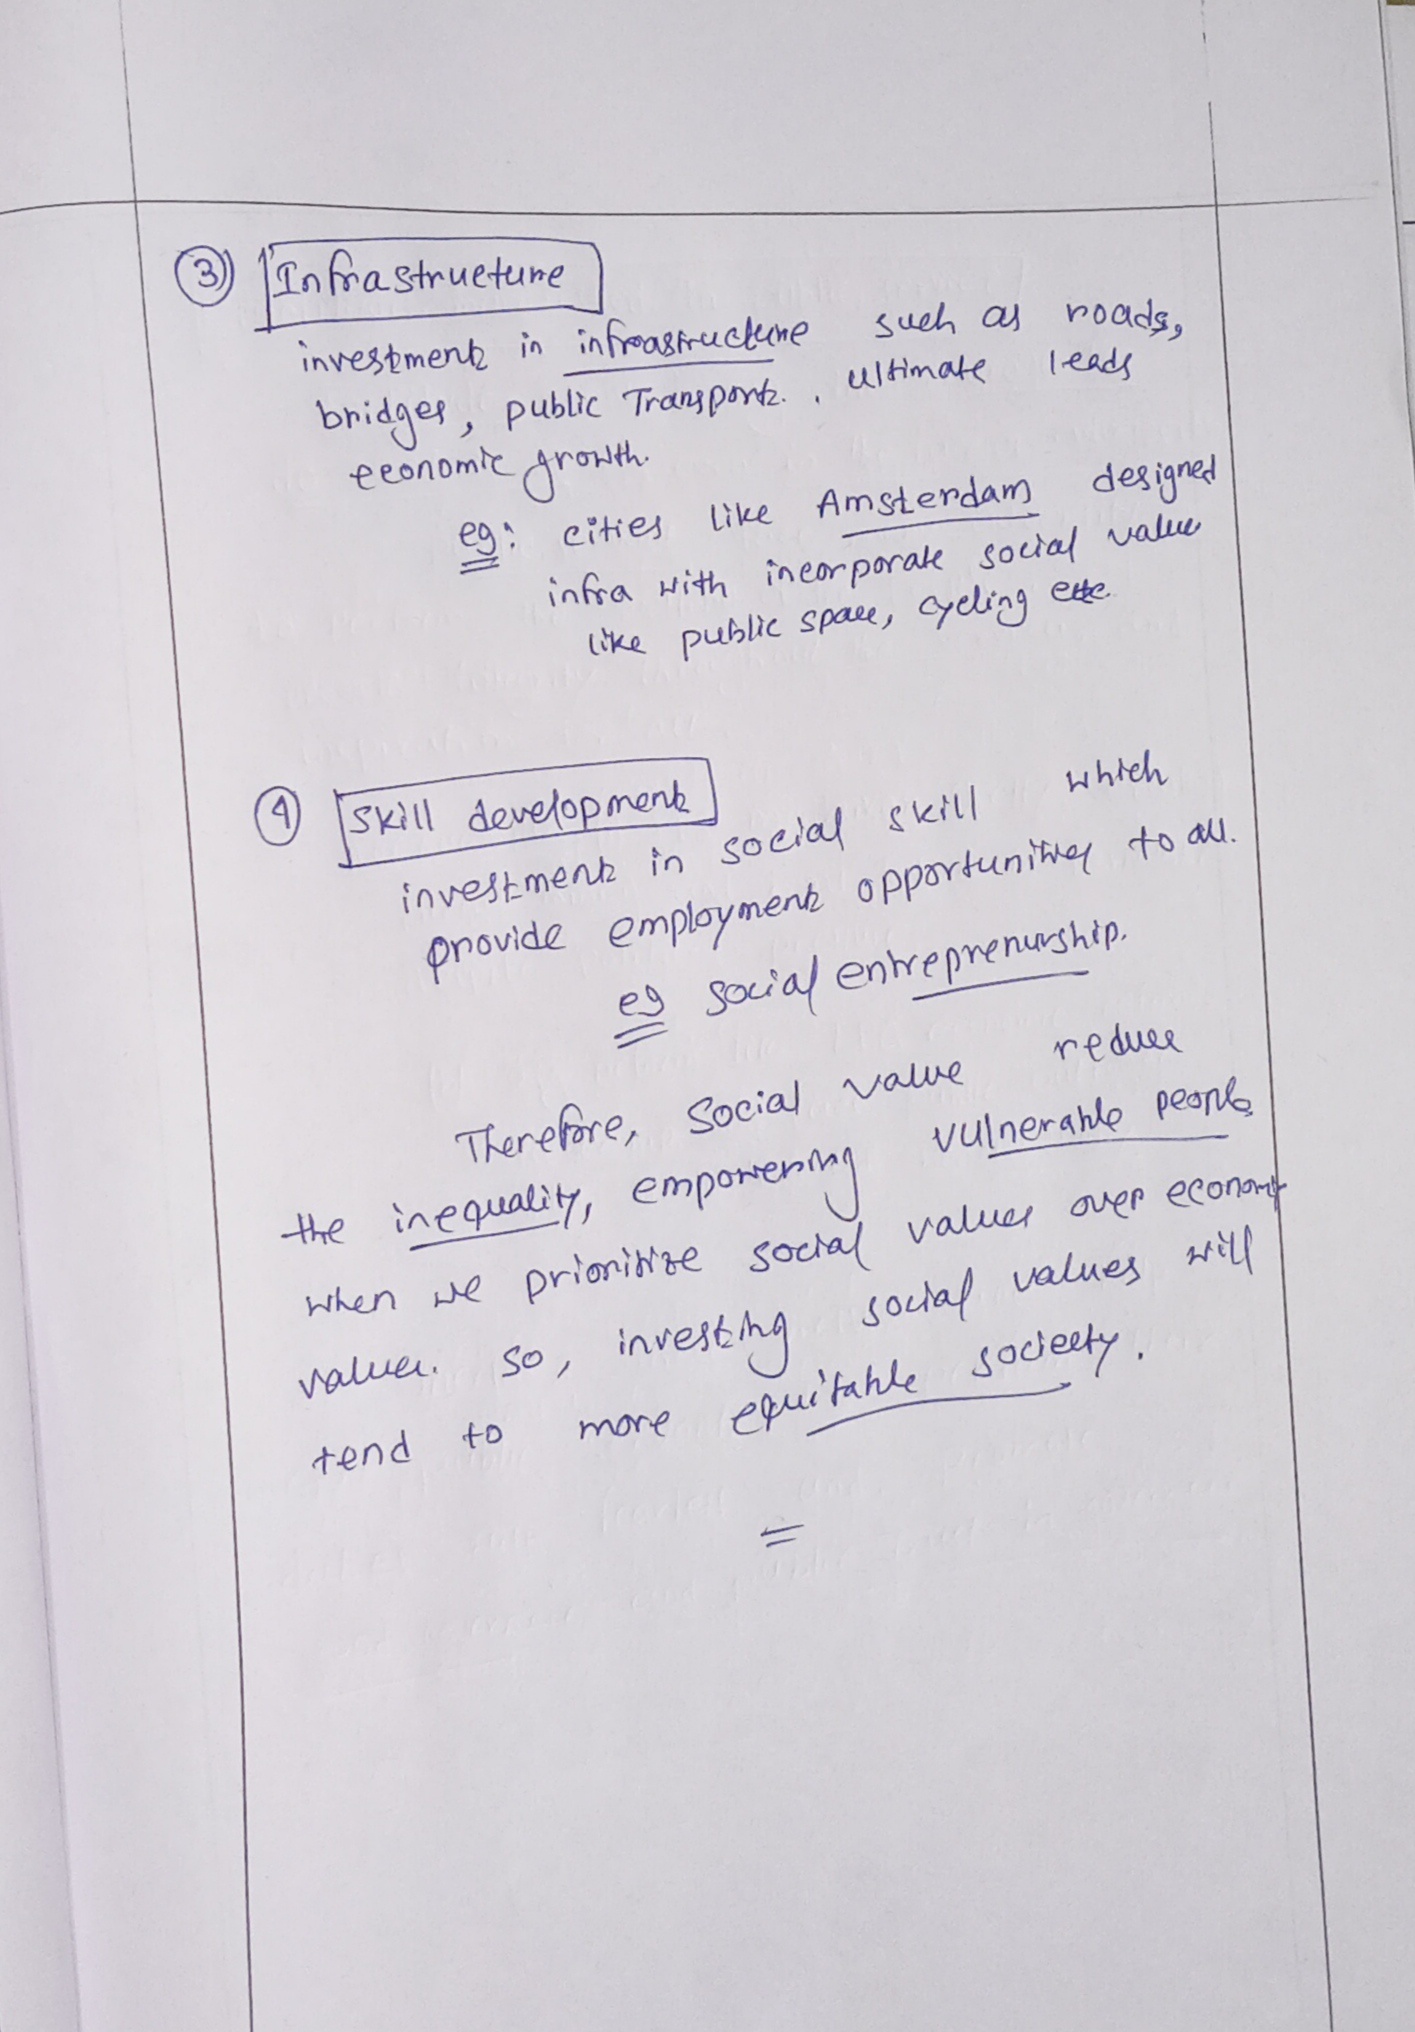 3 Infrastructure
investment in infroastructure such as roads,
bridges, public Transport. , ultimate leads
economic growth.
eg: cities like Amsterdam designed
infra with incorporate social value
like public space, cycling etc
4 Skill development
investment in social skill which
provide employment opportunities to all.
eg social entreprenurship.
Therefore, Social value reduce
the inequality, empowering vulnerable people
when we prioritize social values over economy
values. So, investing social values will
tend to more equitable socieety.
=